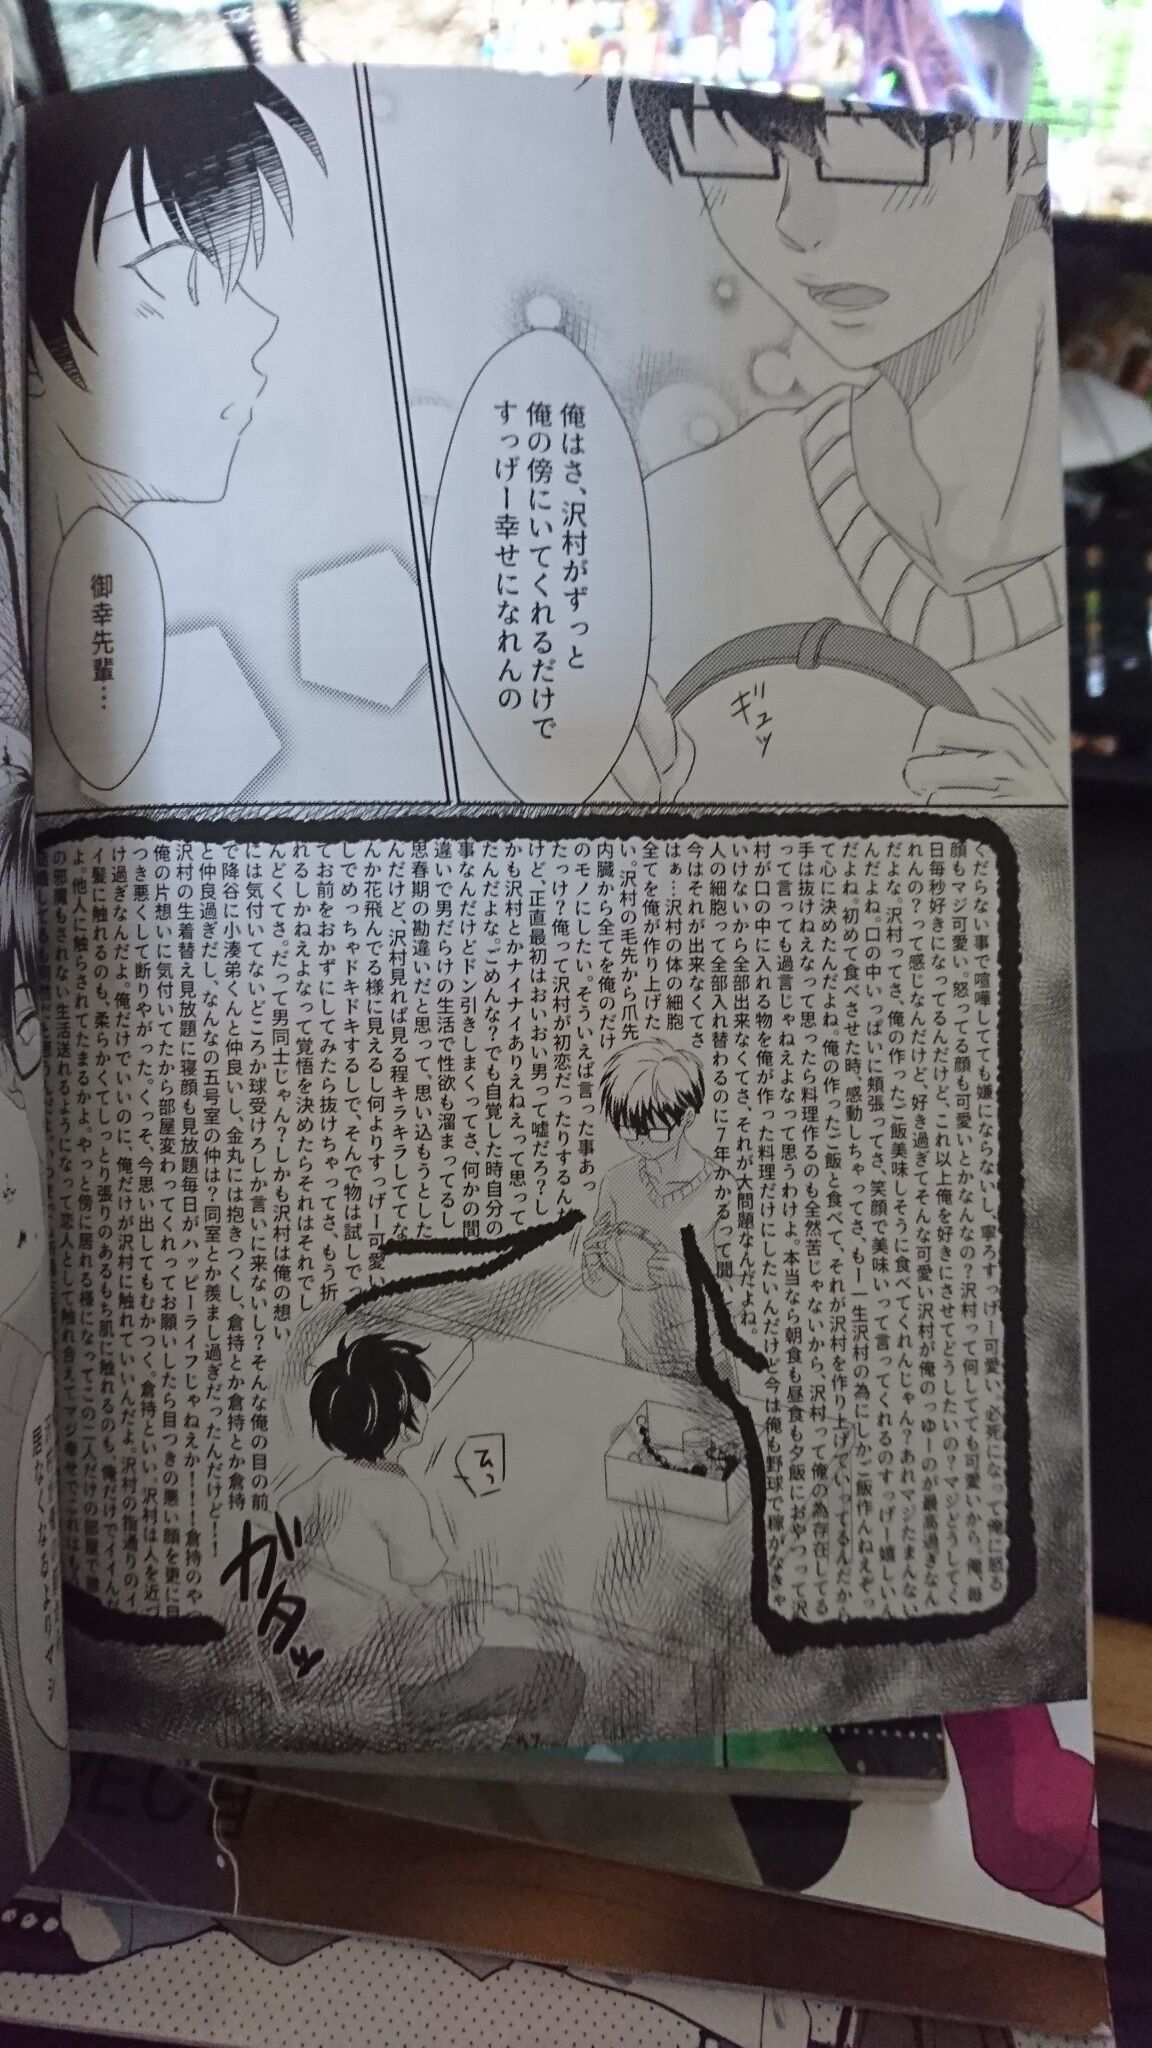 俺はさ、沢村がずっと
俺の傍にいてくれるだけで
すっげー幸せになれんの
ギュッ
御幸先輩…
くだらない事で喧嘩してても嫌にならないし、寧ろすっげー可愛い、必死になって俺に怒る
顔もマジ可愛い。怒ってる顔も可愛いとかなんなの?沢村って何してても可愛いから、俺、毎
日毎秒好きになってるんだけど、これ以上俺を好きにさせてどうしたいの?マジどうしてく
れんの?って感じなんだけど、好き過ぎてそんな可愛い沢村が俺のっゆーのが最高過ぎなん
だよな。沢村ってさ、俺の作ったご飯美味しそうに食べてくれんじゃん?あれマジたまんない
んだよね。口の中いっぱいに頬張ってさ、笑顔で美味いって言ってくれるのすっげー嬉しいん
だよね。初めて食べさせた時、感動しちゃってさ、もー一生沢村の為にしかご飯作んねえぞっ
て心に決めたんだよね。俺の作ったご飯と食べて、それが沢村を作り上げていってるんだから
手は抜けねえなって思ったら料理作るのも全然苦じゃないから、沢村って俺の為存在してる
って言っても過言じゃねえよなって思うわけよ。本当なら朝食も昼食も夕飯におやつって沢
村が口の中に入れる物を俺が作った料理だけにしたいんだけど今は俺も野球で稼がなきゃ
いけないから全部出来なくてさ、それが大問題なんだよね。
人の細胞って全部入れ替わるのに7年かかるって聞い
今はそれが出来なくてさ
はぁ…沢村の体の細胞
全てを俺が作り上げた
い。沢村の毛先から爪先
内臓から全てを俺のだけ
のモノにしたい。そういえば言った事あっ
たっけ?俺って沢村が初恋だったりするんだ
けど、正直最初はおいおい男って嘘だろ?し
かも沢村とかナイナイありえねえって思って
たんだよな。ごめんな?でも自覚した時自分の
事なんだけどドン引きしまくってさ、何かの間
違いで男だらけの生活で性欲も溜まってるし
思春期の勘違いだと思って、思い込もうとした
んだけど、沢村見れば見る程キラキラしててな
んか花飛んでる様に見えるし何よりすっげー可愛い
しでめっちゃドキドキするしで、そんで物は試しでっ
てお前をおかずにしてみたら抜けちゃってさ、もう折
れるしかねえよなって覚悟を決めたらそれはそれでし
んどくてさ。だって男同士じゃん?しかも沢村は俺の想い
には気付いてないどころか球受けろしか言いに来ないし?そんな俺の目の前
で降谷に小湊弟くんと仲良いし、金丸には抱きつくし、倉持とか倉持とか倉持
と仲良過ぎだし、なんなの五号室の仲は?同室とか羨まし過ぎだったんだけど!!
沢村の生着替え見放題に寝顔も見放題毎日がハッピーライフじゃねえか!!!倉持のやつ
俺の片想いに気付いてたから部屋変わってくれってお願いしたら目つきの悪い顔を更に目
つき悪くして断りやがった。くっそ、今思い出してもむかつく。倉持といい、沢村は人を近づ
け過ぎなんだよ。俺だけでいいのに、俺だけが沢村に触れていいんだよ。沢村の指通りのイ
イ髪に触れるのも、柔らかくてしっとり張りのあるもち肌に触れるのも、俺だけでイイんだ
よ。他人に触らされてたまるかよ。やっと傍に居れる様になってこの二人だけの部屋で誰
の邪魔もされない生活送れるようになって恋人として触れ合えてマジ幸せでこれはも
ムっ
ガタッ